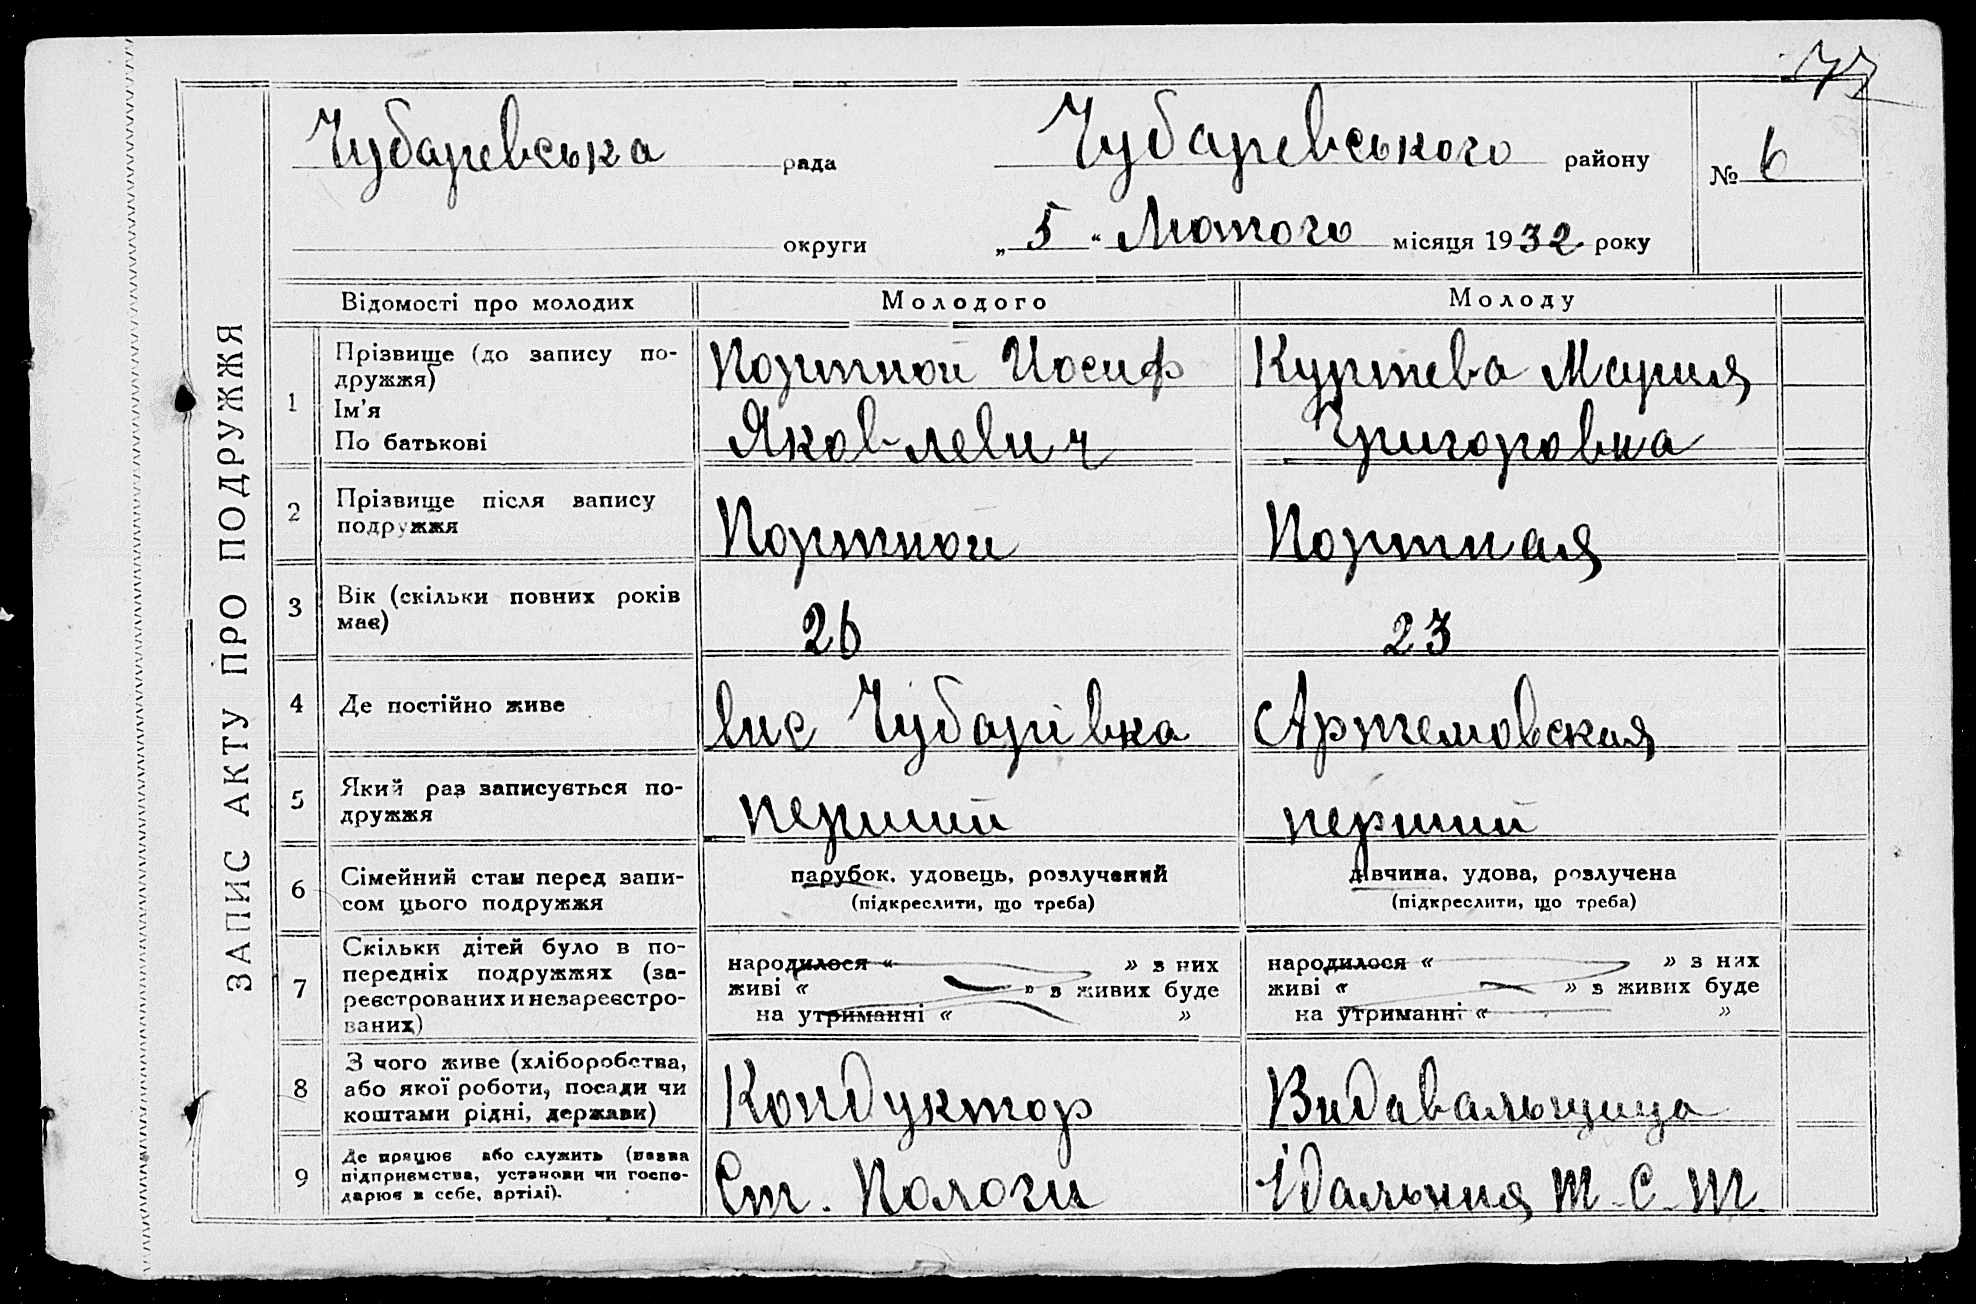 77
Чубаревська рада Чубаревського району № 6
округи „ 5 “ Лютого місяця 1932 року
ЗАПИС АКТУ ПРО ПОДРУЖЖЯ
Відомості про молодих Молодого Молоду
1 Прізвище (до запису по-
дружжя)
Ім’я
По батькові
Портной Иосиф
Яковлевич
Куртева Мария
Григоровна
2 Прізвище після запису
подружжя
Портной
Портная
3 Вік (скільки повних років
має)
26
23
4 Де постійно живе
вис Чубарівка
Артемовская
5 Який раз записується по-
дружжя
перший
перший
6 Сімейний стан перед запи-
сом цього подружжя
парубок, удовець, розлучений
(підкреслити, що треба)
дівчина, удова, розлучена
(підкреслити, що треба)
7 Скільки дітей було в по-
передніх подружжях (за-
реєстрованих и незареєстро-
ваних)
народилося « » з них
живі « » в живих буде
на утриманні « »
народилося « » з них
живі « » в живих буде
на утриманні « »
8 З чого живе (хліборобства,
або якої роботи, посади чи
коштами рідні, держави)
Кондуктор
Видавальщица
9 Де працює або служить (назва
підприємства, установи чи госпо-
дарює в себе, артілі).
Ст. Пологи
Їдальния т. с. т.